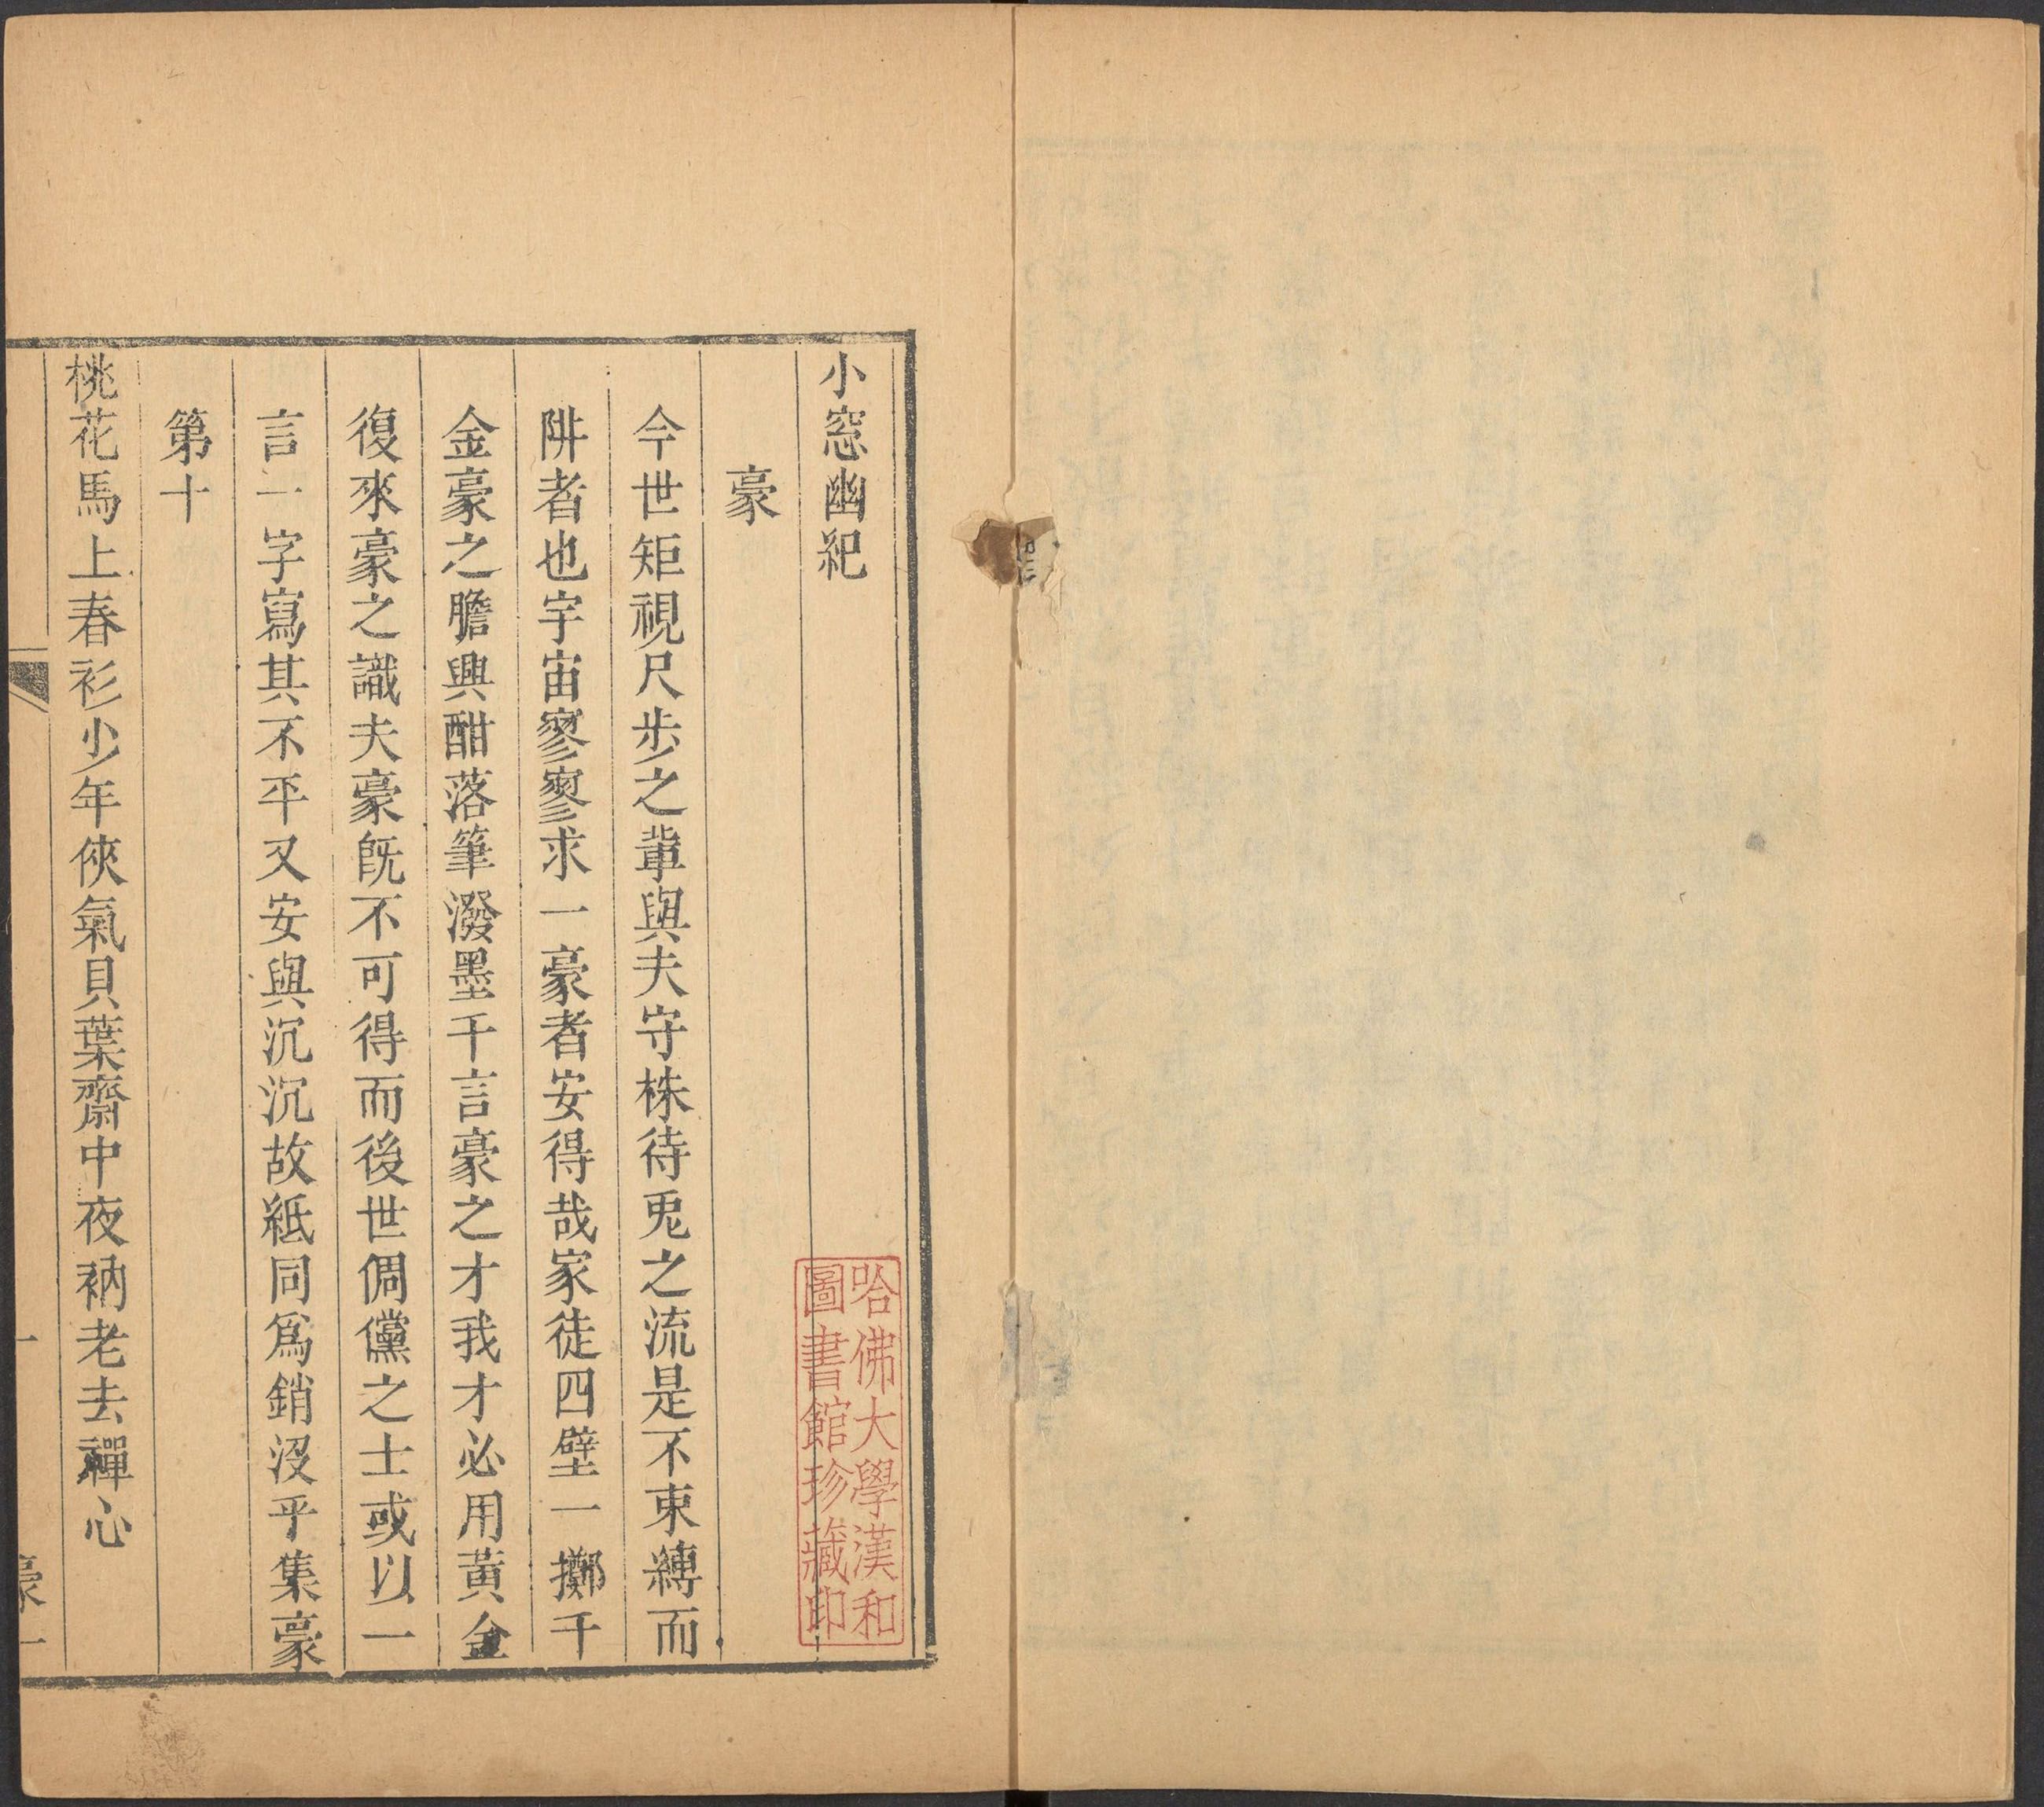 小窓幽紀
豪
今世矩視尺步之軰與夫守株待兎之流是不束縛而
阱者也宇宙寥寥求一豪者安得哉家徒四壁一擲千
金豪之膽興酣落筆潑墨千言豪之才我才必用黃金
復來豪之識夫豪旣不可得而後世倜儻之士或以一
言一字寫其不平又安與沉沉故紙同爲銷沒乎集豪
第十
桃花馬上春衫少年俠氣貝葉齋中夜衲老去禪心
一
豪一
哈佛大學漢和
圖書館珍藏印